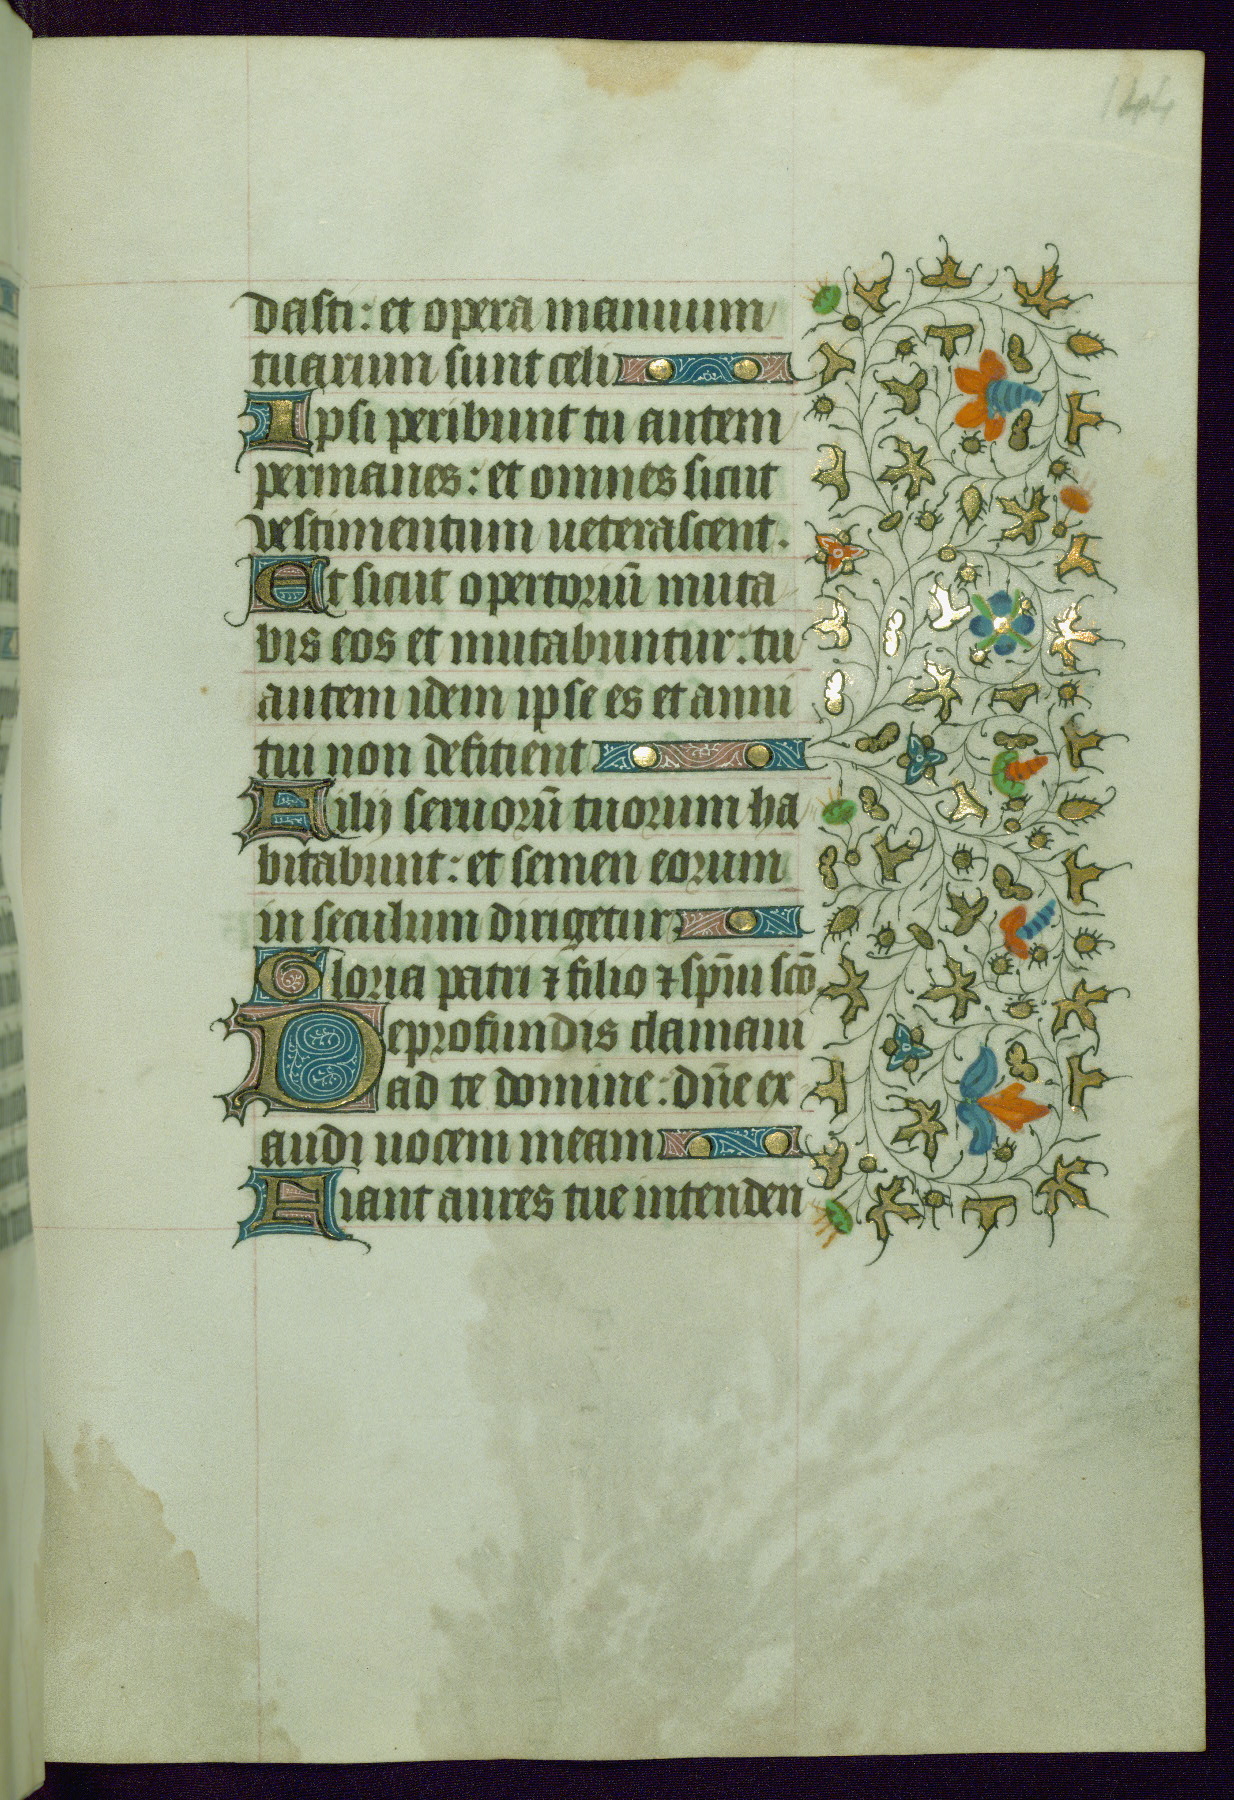 144
dasti: et opera manuum
tuarum sunt celi
Ipsi peribunt tu autem
permanes: et omnes sicut
vestimentum ueterascent.
Et sicut opertoriū muta
bis eos et mutabuntur: tu
autem idem ipse es et anni
tui non defitient
Filij seruorū tuorum ha
bitabunt: et semen eorum
in seculum dirigetur
Gloria patri ⁊ filio ⁊ sp̄iui scō.
De profundis clamaui
ad te domine: dn̄e ex
audi uocem meam
Fiant aures tue intenden